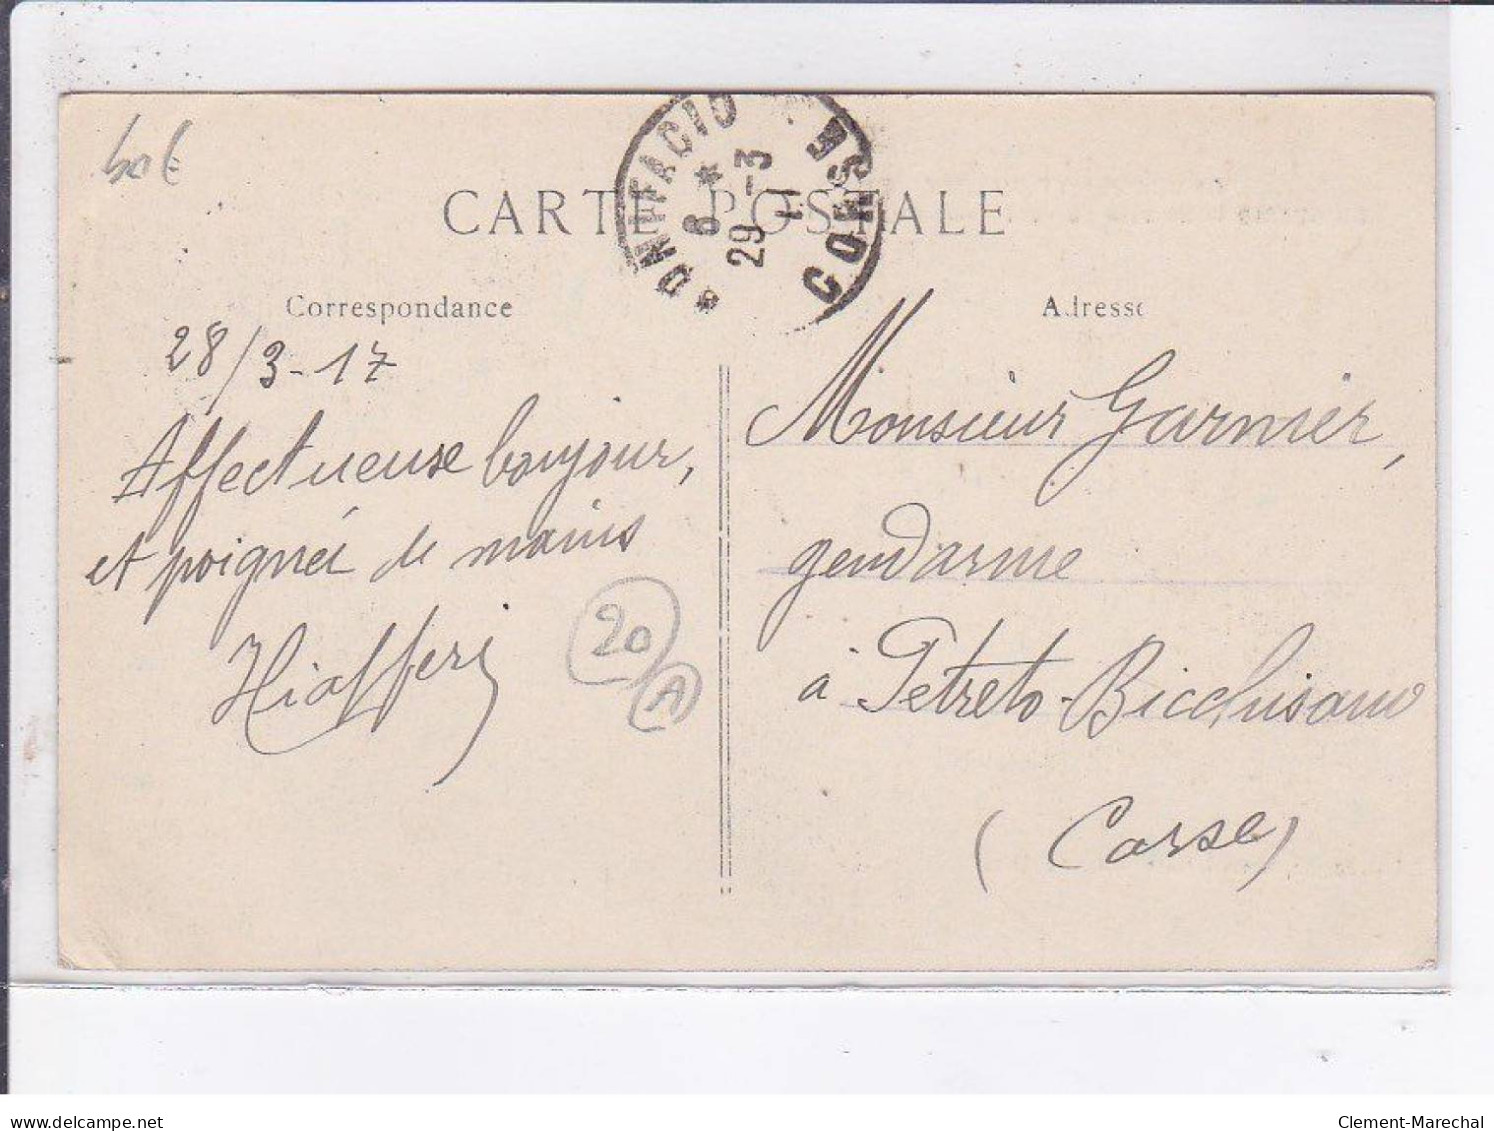 60€
BONIFACIO
CORSE
6 *
29 -3
11
CARTE POSTALE
Correspondance
28/3-17
Affectueuse bonjour,
et poignée de mains
Hiafferi
20
A
Adresse
Monsieur Garnier,
gendarme
à Petreto-Bicchisano
(Corse)
delcampe.net
Clement-Marechal